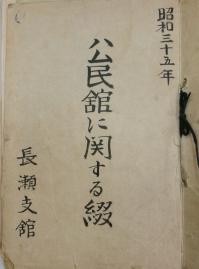 昭和三十五年
公民舘に関する綴
長瀬支舘